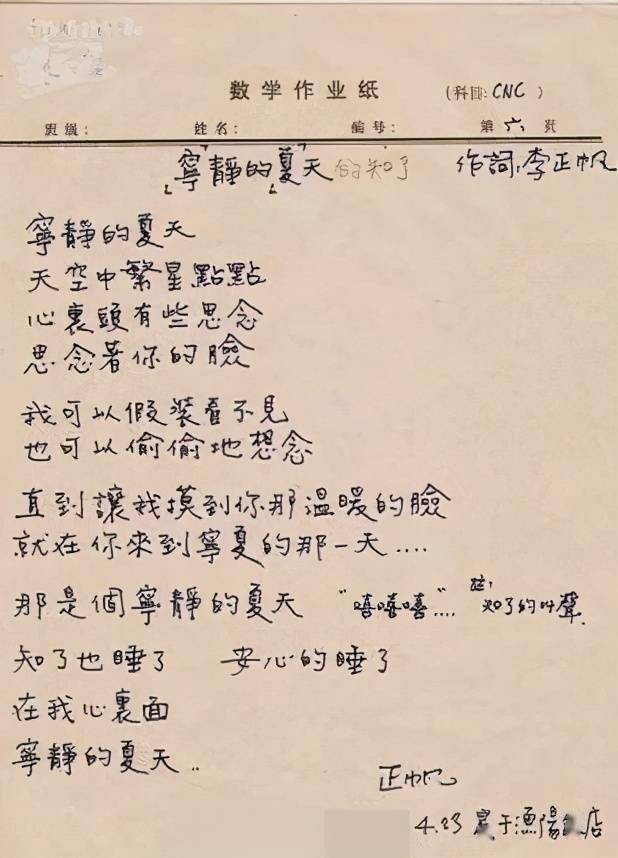 数学作业纸 (科目: CNC )
班级: 姓名: 编号: 第 六 页
「"寧靜的"夏」天 的知了 作詞:李正帆
寧靜的夏天
天空中繁星點點
心裏頭有些思念
思念著你的臉
我可以假裝看不見
也可以偷偷地想念
直到讓我摸到你那溫暖的臉
就在你來到寧夏的那一天....
那是個寧靜的夏天 "嘻嘻嘻".... 註: 知了的叫聲
知了也睡了 安心的睡了
在我心裏面
寧靜的夏天..
正帆
4.23 于漁陽飯店